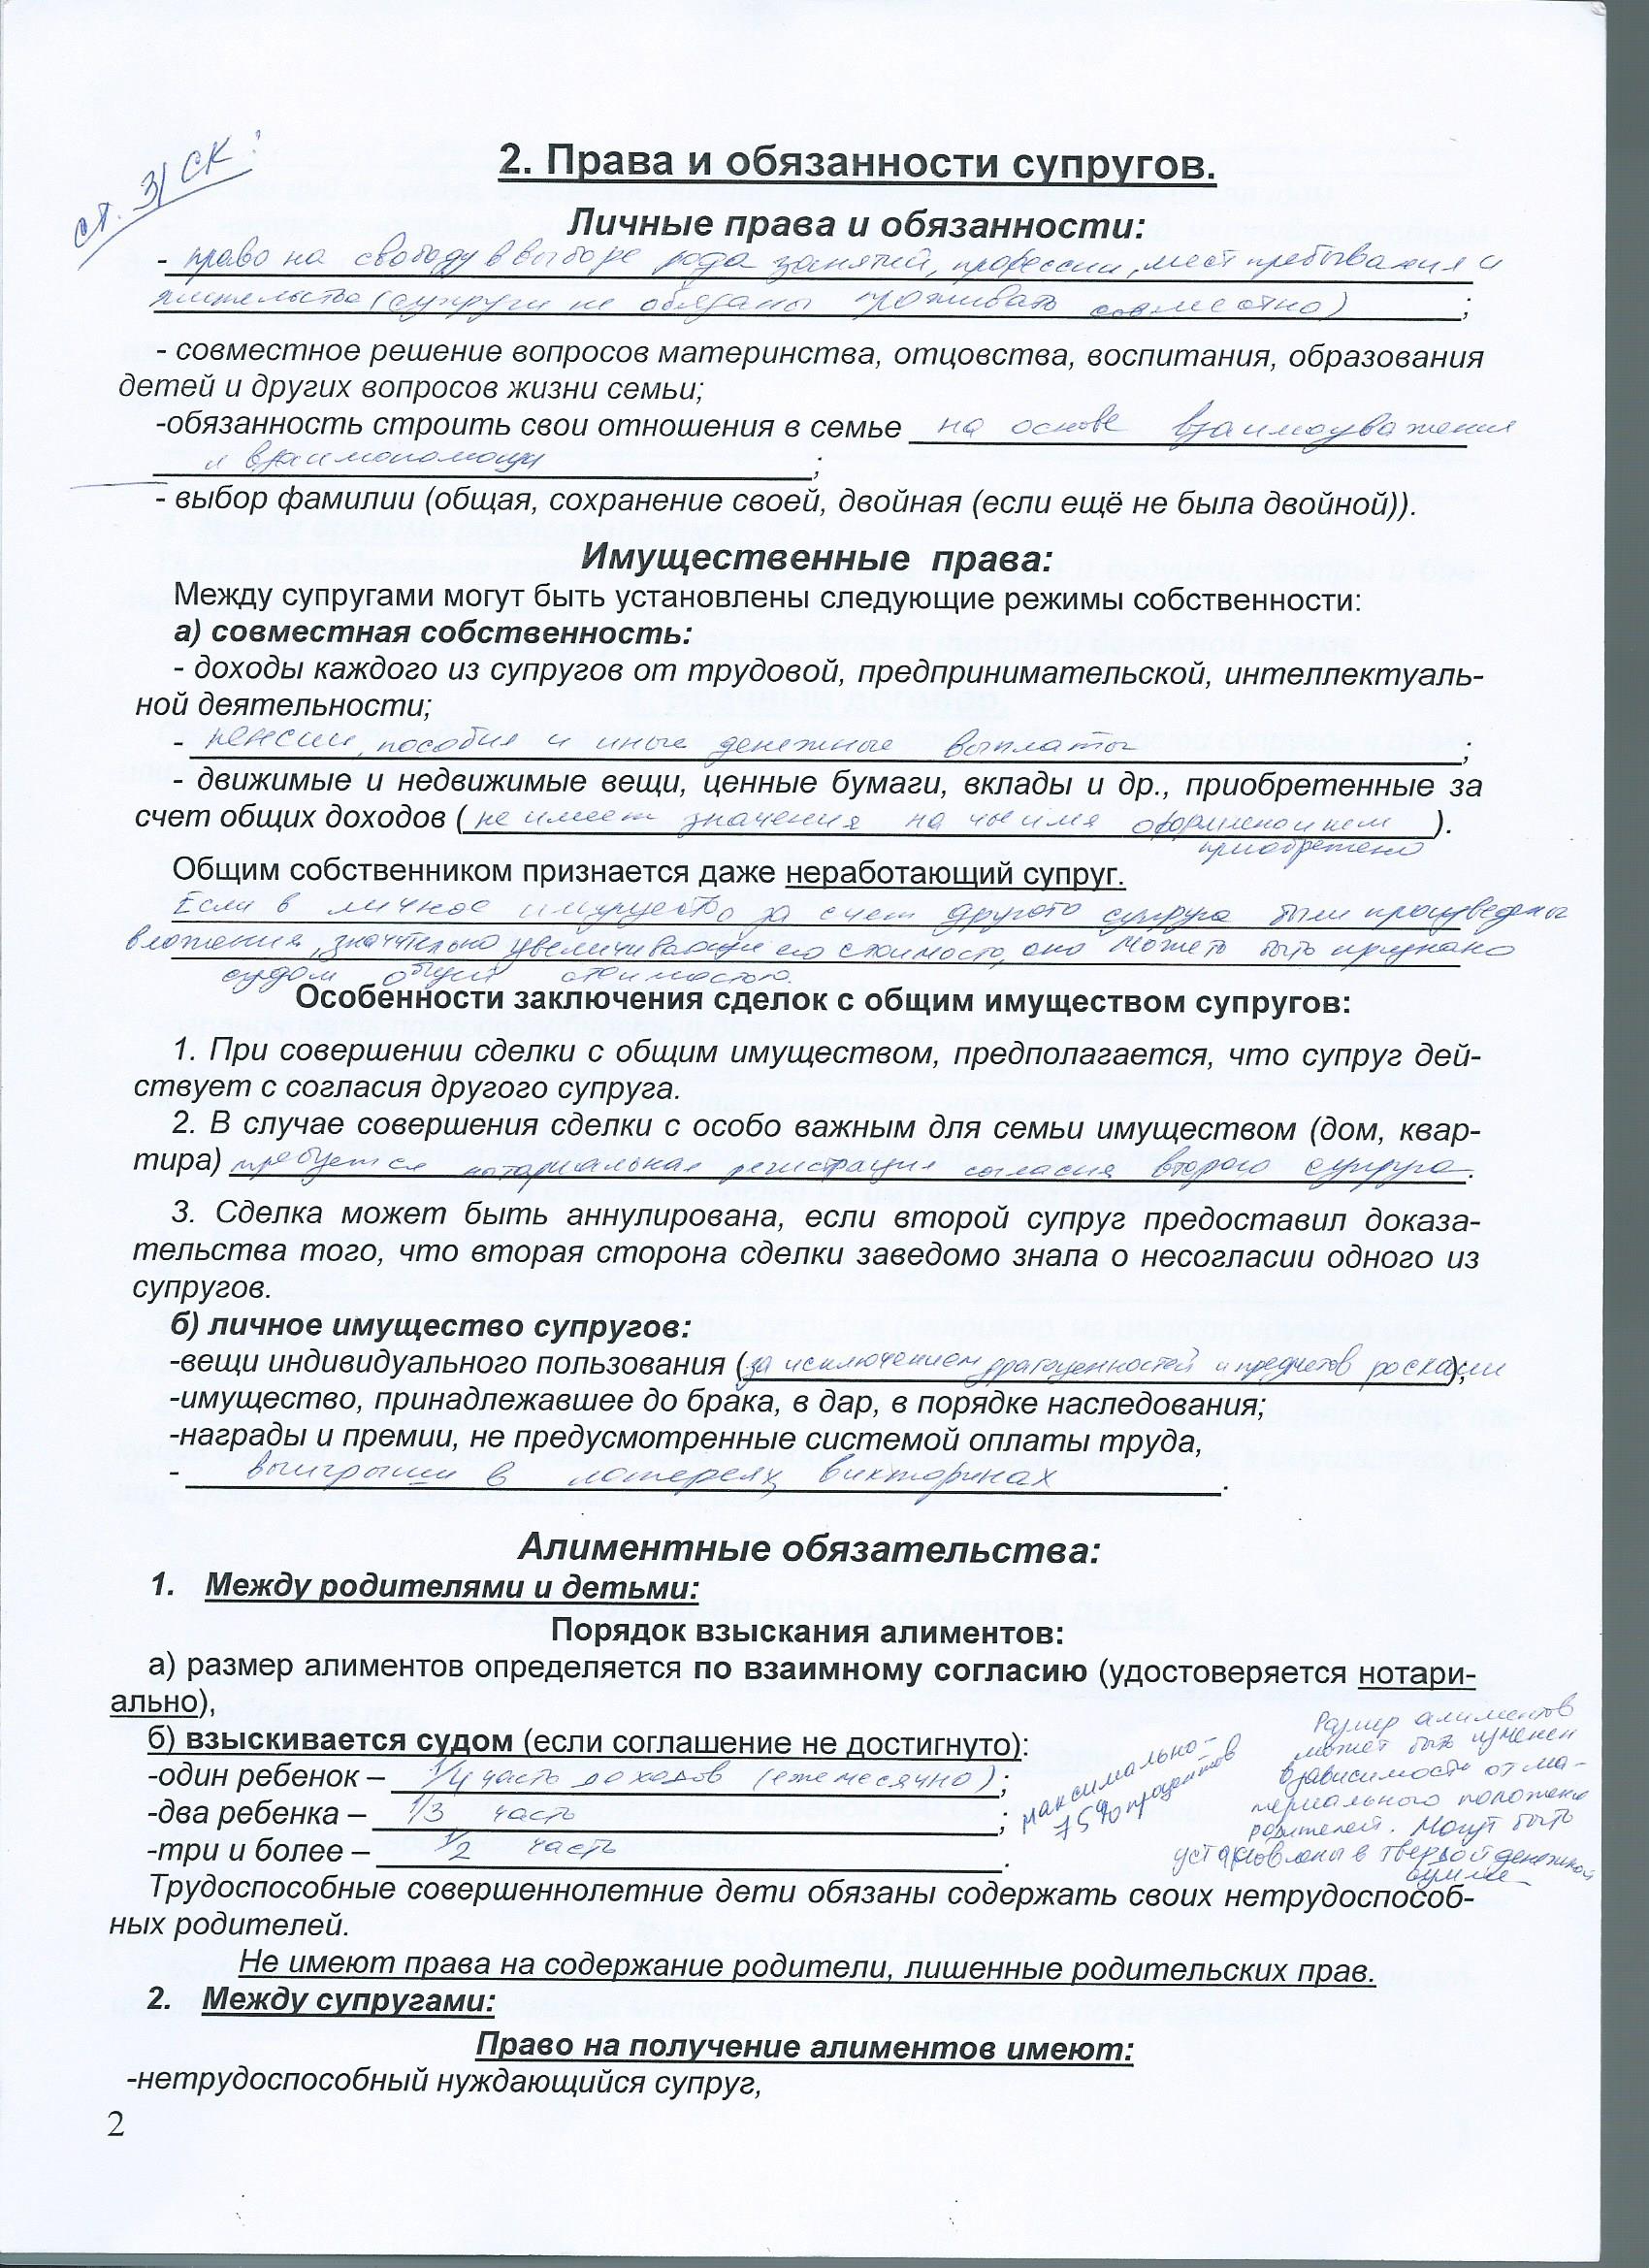 ст. 31 СК:
2. Права и обязанности супругов.
Личные права и обязанности:
- право на свободу в выборе рода занятий, профессии, мест пребывания и
жительства (супруги не обязаны проживать совместно) ;
- совместное решение вопросов материнства, отцовства, воспитания, образования
детей и других вопросов жизни семьи;
-обязанность строить свои отношения в семье на основе взаимоуважения
и взаимопомощи ;
- выбор фамилии (общая, сохранение своей, двойная (если ещё не была двойной)).
Имущественные права:
Между супругами могут быть установлены следующие режимы собственности:
а) совместная собственность:
- доходы каждого из супругов от трудовой, предпринимательской, интеллектуаль-
ной деятельности;
- пенсии, пособия и иные денежные выплаты ;
- движимые и недвижимые вещи, ценные бумаги, вклады и др., приобретенные за
счет общих доходов (не имеет значения на чье имя оформлено и кем ).
приобретено
Общим собственником признается даже неработающий супруг.
Если в личное имущество за счет другого супруга были произведены
вложения, значительно увеличивающие его стоимость, оно может быть признано
судом общей стоимостью.
Особенности заключения сделок с общим имуществом супругов:
1. При совершении сделки с общим имуществом, предполагается, что супруг дей-
ствует с согласия другого супруга.
2. В случае совершения сделки с особо важным для семьи имуществом (дом, квар-
тира) требуется нотариальная регистрация согласия второго супруга.
3. Сделка может быть аннулирована, если второй супруг предоставил доказа-
тельства того, что вторая сторона сделки заведомо знала о несогласии одного из
супругов.
б) личное имущество супругов:
-вещи индивидуального пользования (за исключением драгоценностей и предметов роскоши),
-имущество, принадлежавшее до брака, в дар, в порядке наследования;
-награды и премии, не предусмотренные системой оплаты труда,
- выигрыши в лотереях, викторинах .
Алиментные обязательства:
1. Между родителями и детьми:
Порядок взыскания алиментов:
а) размер алиментов определяется по взаимному согласию (удостоверяется нотари-
ально),
б) взыскивается судом (если соглашение не достигнуто):
-один ребенок – 1/4 часть доходов (ежемесячно) ;
-два ребенка – 1/3 часть ;
-три и более – 1/2 часть .
максимально-
75% процентов
Размер алиментов
может быть изменен
в зависимости от ма-
териального положения
родителей. Могут быть
установлены в твердой денежной
сумме
Трудоспособные совершеннолетние дети обязаны содержать своих нетрудоспособ-
ных родителей.
Не имеют права на содержание родители, лишенные родительских прав.
2. Между супругами:
Право на получение алиментов имеют:
-нетрудоспособный нуждающийся супруг,
2